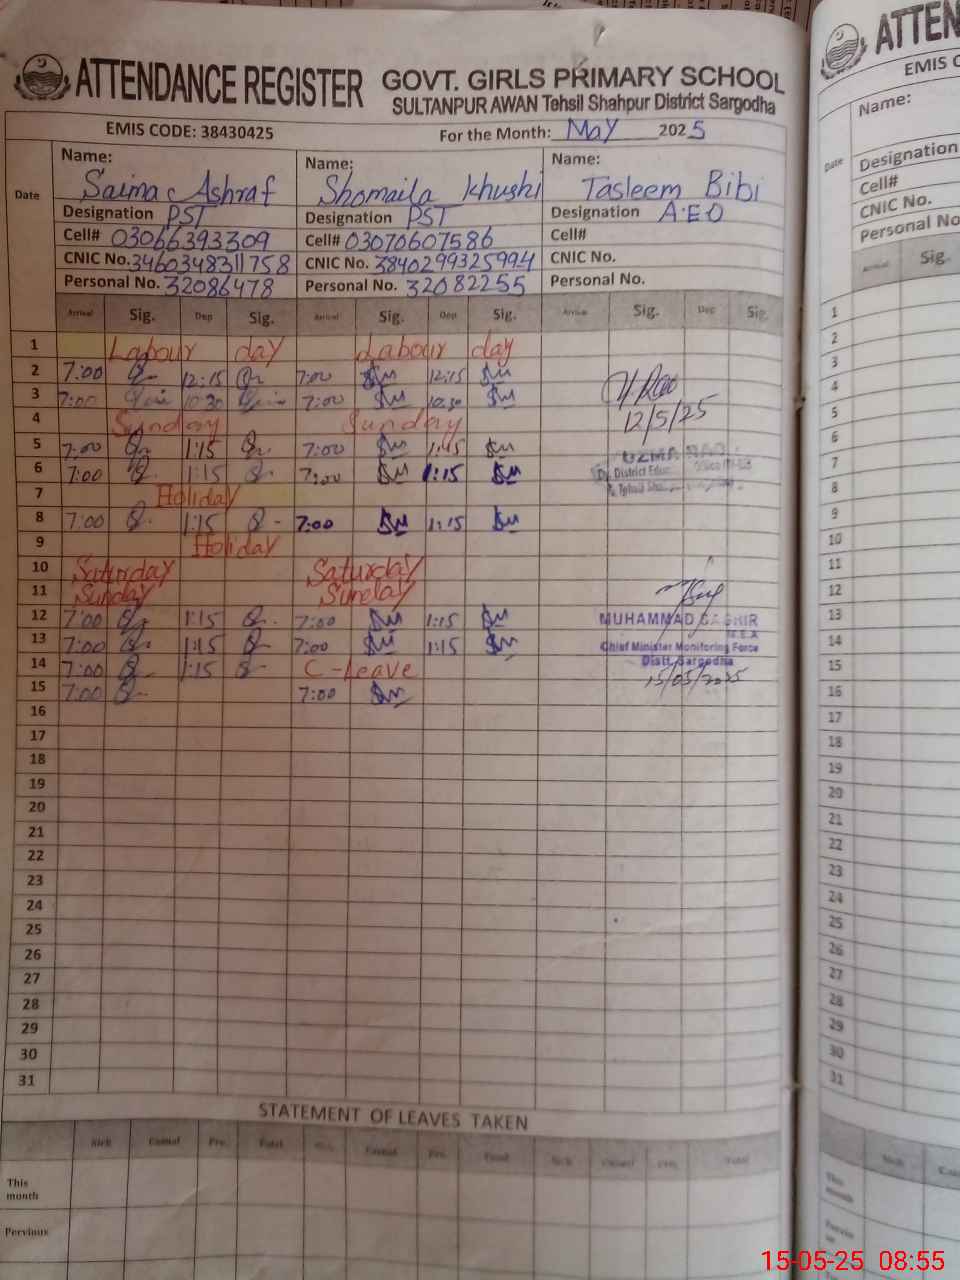 ATTENDANCE REGISTER GOVT. GIRLS PRIMARY SCHOOL
SULTANPUR AWAN Tehsil Shahpur District Sargodha
EMIS CODE: 38430425 For the Month: May 2025
Date Name: Name: Name:
Saima Ashraf Shomaila Khushi Tasleem Bibi
Designation PST Designation PST Designation A.E.O
Cell# 03066393309 Cell# 03070607586 Cell#
CNIC No. 3460348311758 CNIC No. 3840299325994 CNIC No.
Personal No. 32086478 Personal No. 32082255 Personal No.
Arrival Sig. Dep Sig. Arrival Sig. Dep Sig. Arrival Sig. Dep Sig.
1 Labour day Labour day
2 7:00 12:15 7:00 12:15
3 7:00 10:30 7:00 10:30
4 Sunday Sunday
12/5/25
5 7:00 1:15 7:00 1:45
UZMA RAO
6 7:00 1:15 7:00 1:15
District
7 Holiday
8 7:00 1:15 7:00 1:15
9 Holiday
10 Saturday Saturday
11 Sunday Sunday
12 7:00 1:15 7:00 1:15
MUHAMMAD SAGHIR
M.E.A
13 7:00 1:15 7:00 1:15
Chief Minister Monitoring Force
Distt. Sargodha
14 7:00 1:15 C-Leave
15/05/2025
15 7:00 7:00
16
17
18
19
20
21
22
23
24
25
26
27
28
29
30
31
STATEMENT OF LEAVES TAKEN
Sick Casual Pre. Total Sick Casual Pre. Total Sick Casual Pre. Total
This month
Pervious
ATTEN
EMIS C
Name:
Date Designation
Cell#
CNIC No.
Personal No.
Arrival Sig.
1
2
3
4
5
6
7
8
9
10
11
12
13
14
15
16
17
18
19
20
21
22
23
24
25
26
27
28
29
30
31
Sick
This month
15-05-25 08:55